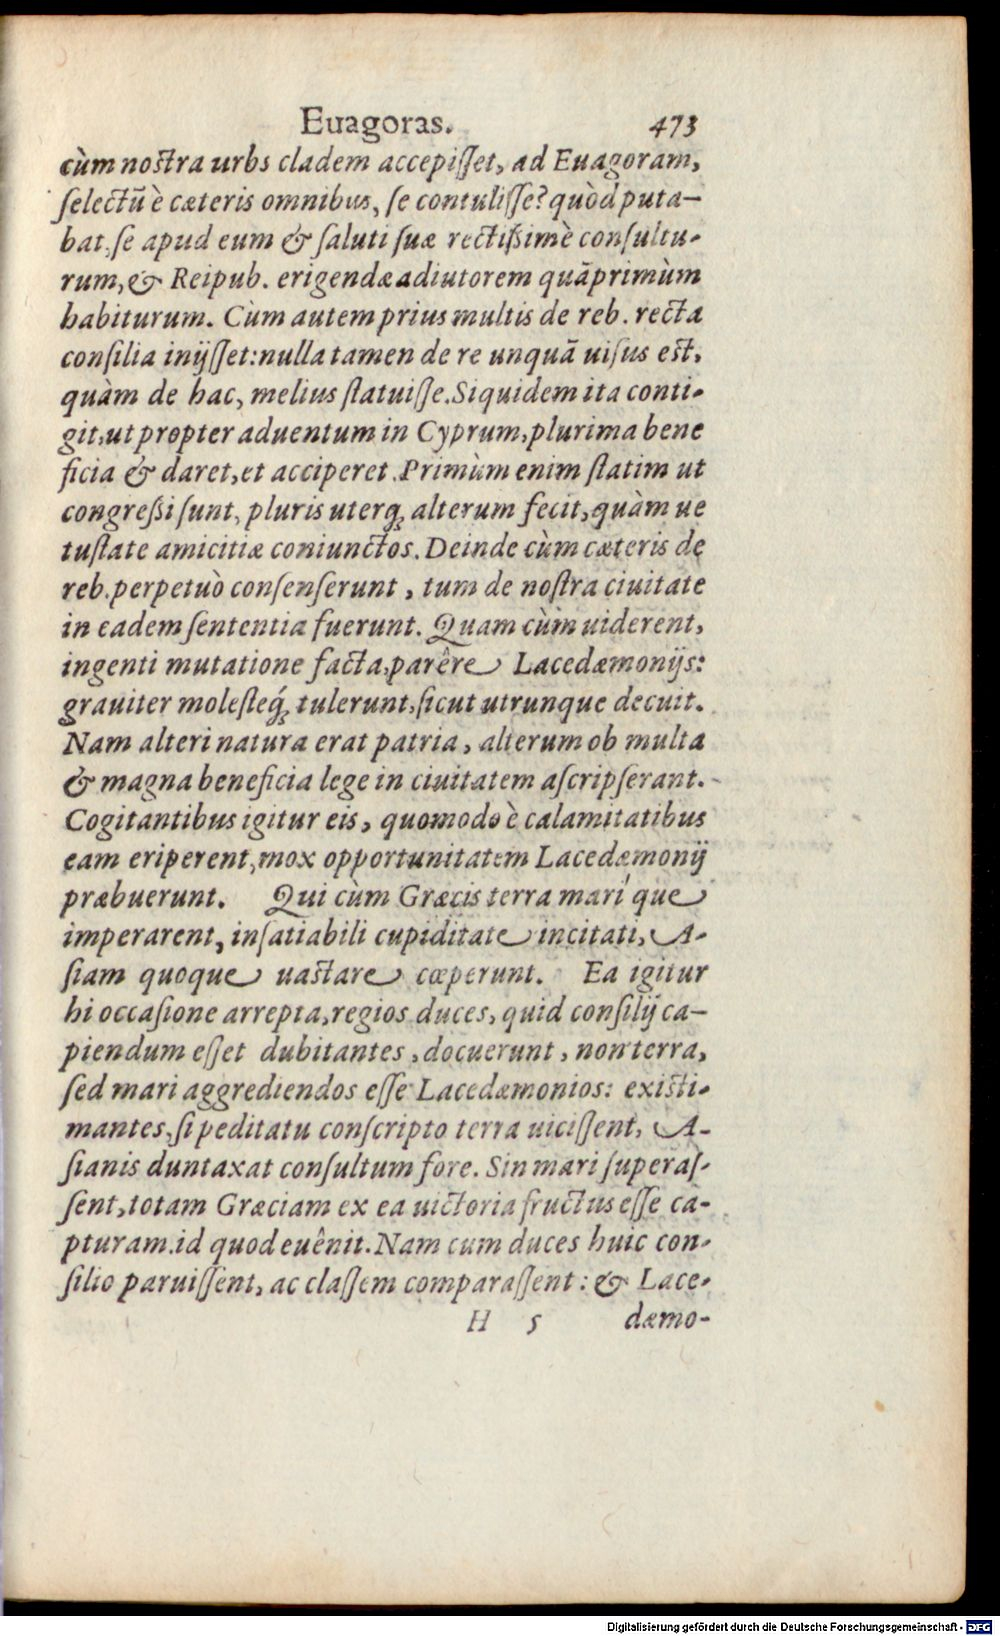 Euagoras. 473
cùm nostra urbs cladem accepiſſet, ad Euagoram,
ſelectũ è cæteris omnibus, ſe contuliſſe? quòd puta-
bat, ſe apud eum & ſaluti ſuæ rectiſsimè conſultu-
rum, & Reipub. erigendæ adiutorem quãprimùm
habiturum. Cùm autem prius multis de reb. recta
conſilia inijſſet: nulla tamen de re unquã uiſus est,
quàm de hac, melius ſtatuiſſe. Siquidem ita conti-
git, ut propter aduentum in Cyprum, plurima bene
ficia & daret, et acciperet. Primùm enim ſtatim ut
congreſsi ſunt, pluris uterq; alterum fecit, quàm ue
tuſtate amicitiæ coniunctos. Deinde cùm cæteris de
reb. perpetuò conſenſerunt, tum de noſtra ciuitate
in eadem ſententia fuerunt. Quam cùm uiderent,
ingenti mutatione facta, parêre Lacedæmonijs:
grauiter moleſteq́; tulerunt, ſicut utrunque decuit.
Nam alteri natura erat patria, alterum ob multa
& magna beneficia lege in ciuitatem aſcripſerant.
Cogitantibus igitur eis, quomodo è calamitatibus
eam eriperent, mox opportunitatem Lacedæmonij
præbuerunt. Qui cùm Græcis terra mari´que
imperarent, inſatiabili cupiditate incitati, A-
ſiam quoque uastare cœperunt. Ea igitur
hi occaſione arrepta, regios duces, quid conſilij ca-
piendum eſſet dubitantes, docuerunt, non terra,
ſed mari aggrediendos eſſe Lacedæmonios: existi-
mantes, ſi peditatu conſcripto terra uiciſſent, A-
ſianis duntaxat conſultum fore. Sin mari ſuperaſ-
ſent, totam Græciam ex ea uictoria fructus eſſe ca-
pturam. id quod euênit. Nam cum duces huic con-
ſilio paruiſſent, ac claſſem comparaſſent: & Lace-
H 5 dæmo-
Digitalisierung gefördert durch die Deutsche Forschungsgemeinschaft - DFG